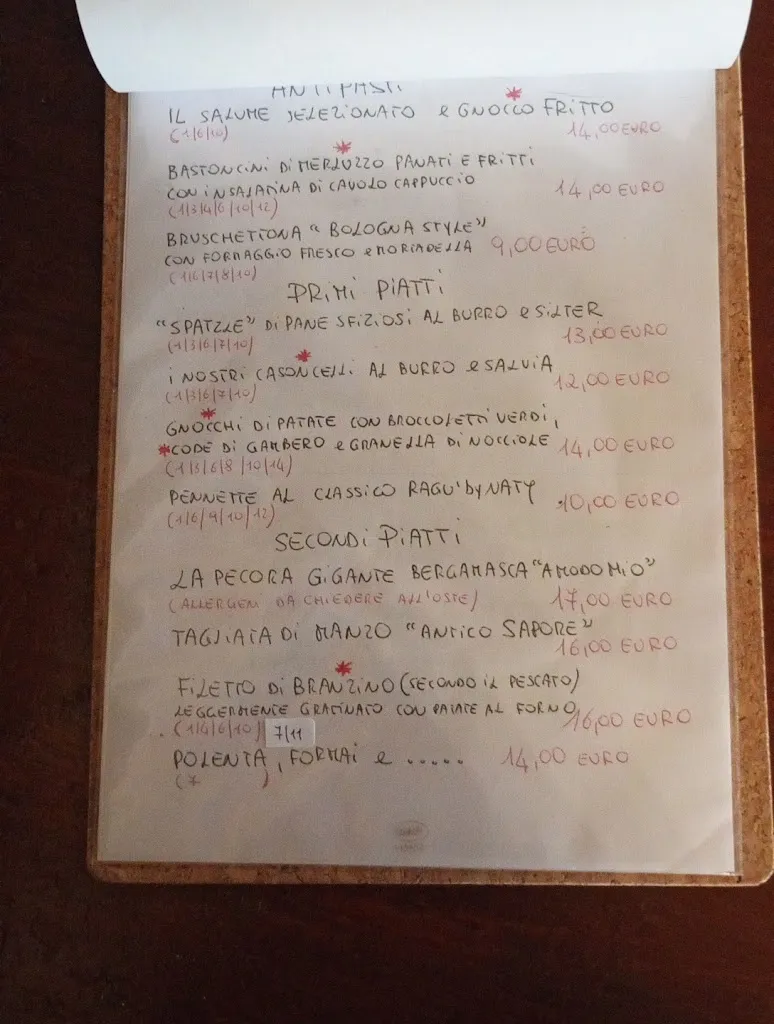 ANTIPASTI
IL SALUME SELEZIONATO e GNOCCO FRITTO
(1/6/10) 14,00 EURO
BASTONCINI DI MERLUZZO PANATI E FRITTI
CON INSALATINA DI CAVOLO CAPPUCCIO 14,00 EURO
(1/3/4/6/10/12)
BRUSCHETTONA "BOLOGNA STYLE"
CON FORMAGGIO FRESCO e MORTADELLA 9,00 EURO
(1/6/7/8/10)
PRIMI PIATTI
"SPATZLE" DI PANE SFIZIOSI AL BURRO e SILTER
(1/3/6/7/10) 13,00 EURO
I NOSTRI CASONCELLI AL BURRO e SALVIA
(1/3/6/7/10) 12,00 EURO
GNOCCHI DI PATATE CON BROCCOLETTI VERDI,
*CODE DI GAMBERO e GRANELLA DI NOCCIOLE 14,00 EURO
(1/3/6/8/10/14)
PENNETTE AL CLASSICO RAGU' by NATY 10,00 EURO
(1/6/9/10/12)
SECONDI PIATTI
LA PECORA GIGANTE BERGAMASCA "A MODO MIO"
(ALLERGENI DA CHIEDERE ALL'OSTE) 17,00 EURO
TAGLIATA DI MANZO "ANTICO SAPORE"
16,00 EURO
FILETTO DI BRANZINO (SECONDO IL PESCATO)
LEGGERMENTE GRATINATO CON PATATE AL FORNO 16,00 EURO
(1/4/6/10) 7/11
POLENTA, FORMAI e ..... 14,00 EURO
(* )